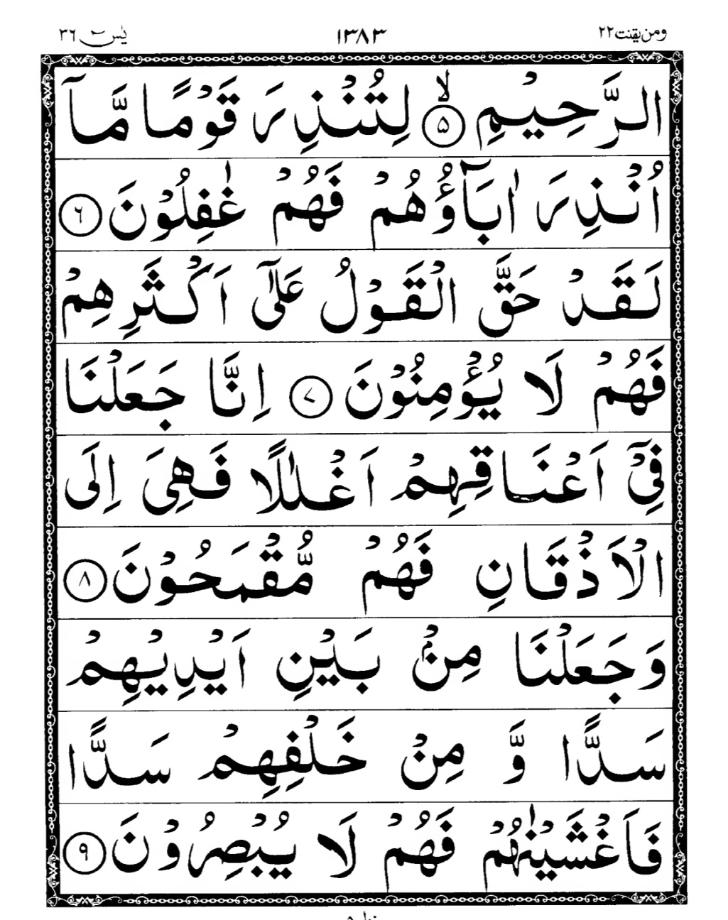 ومن يقنت ٢٢ ١٣٨٣ يٰسٓ ٣٦
الرَّحِيْمِ ۙ‏﴿۵﴾ لِتُنْذِرَ قَوْمًا مَّاۤ
اُنْذِرَ اٰبَآؤُهُمْ فَهُمْ غٰفِلُوْنَ ﴿۶﴾
لَقَدْ حَقَّ الْقَوْلُ عَلٰۤى اَكْثَرِهِمْ
فَهُمْ لَا يُؤْمِنُوْنَ ﴿۷﴾ اِنَّا جَعَلْنَا
فِيْۤ اَعْنَاقِهِمْ اَغْلٰلًا فَهِىَ اِلَى
الْاَذْقَانِ فَهُمْ مُّقْمَحُوْنَ ﴿۸﴾
وَجَعَلْنَا مِنْۢ بَيْنِ اَيْدِيْهِمْ
سَدًّا وَّ مِنْ خَلْفِهِمْ سَدًّا
فَاَغْشَيْنٰهُمْ فَهُمْ لَا يُبْصِرُوْنَ ﴿۹﴾